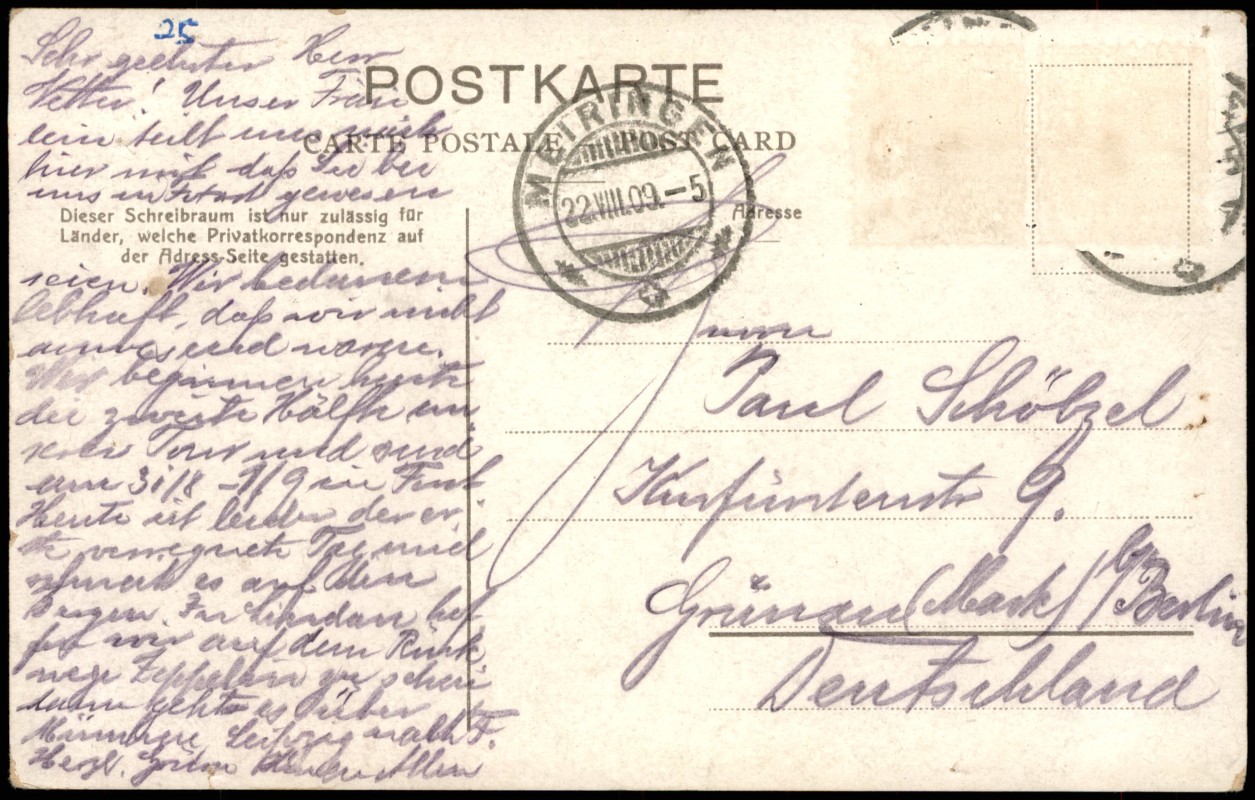 25
Sehr geehrter Herr
Vetter! Unser Fräu
lein teilt uns
hier mit daß Sie bei
uns in gewesen
seien. Wir bedauern
lebhaft, daß wir nicht
anwesend waren.
Wir beginnen heute
die zweite Hälfte un
serer Tour und sind
am 31/8 - 1/9 in
Heute ist leider der er
ste verregnete Tag und
schneit es auf den
Bergen. In Lindau hof
fen wir auf dem Rück
wege Zeppelin zu sehen
dann geht es über
Leipzig nach F.
Herzl.
POSTKARTE
CARTE POSTALE POST CARD
Dieser Schreibraum ist nur zulässig für
Länder, welche Privatkorrespondenz auf
der Adress-Seite gestatten.
MEIRINGEN
22.VIII.09.-5
Adresse
Herrn
Paul Schöbzel
Kurfürstenstr 9.
Grünau (Mark) b/Berlin
Deutschland